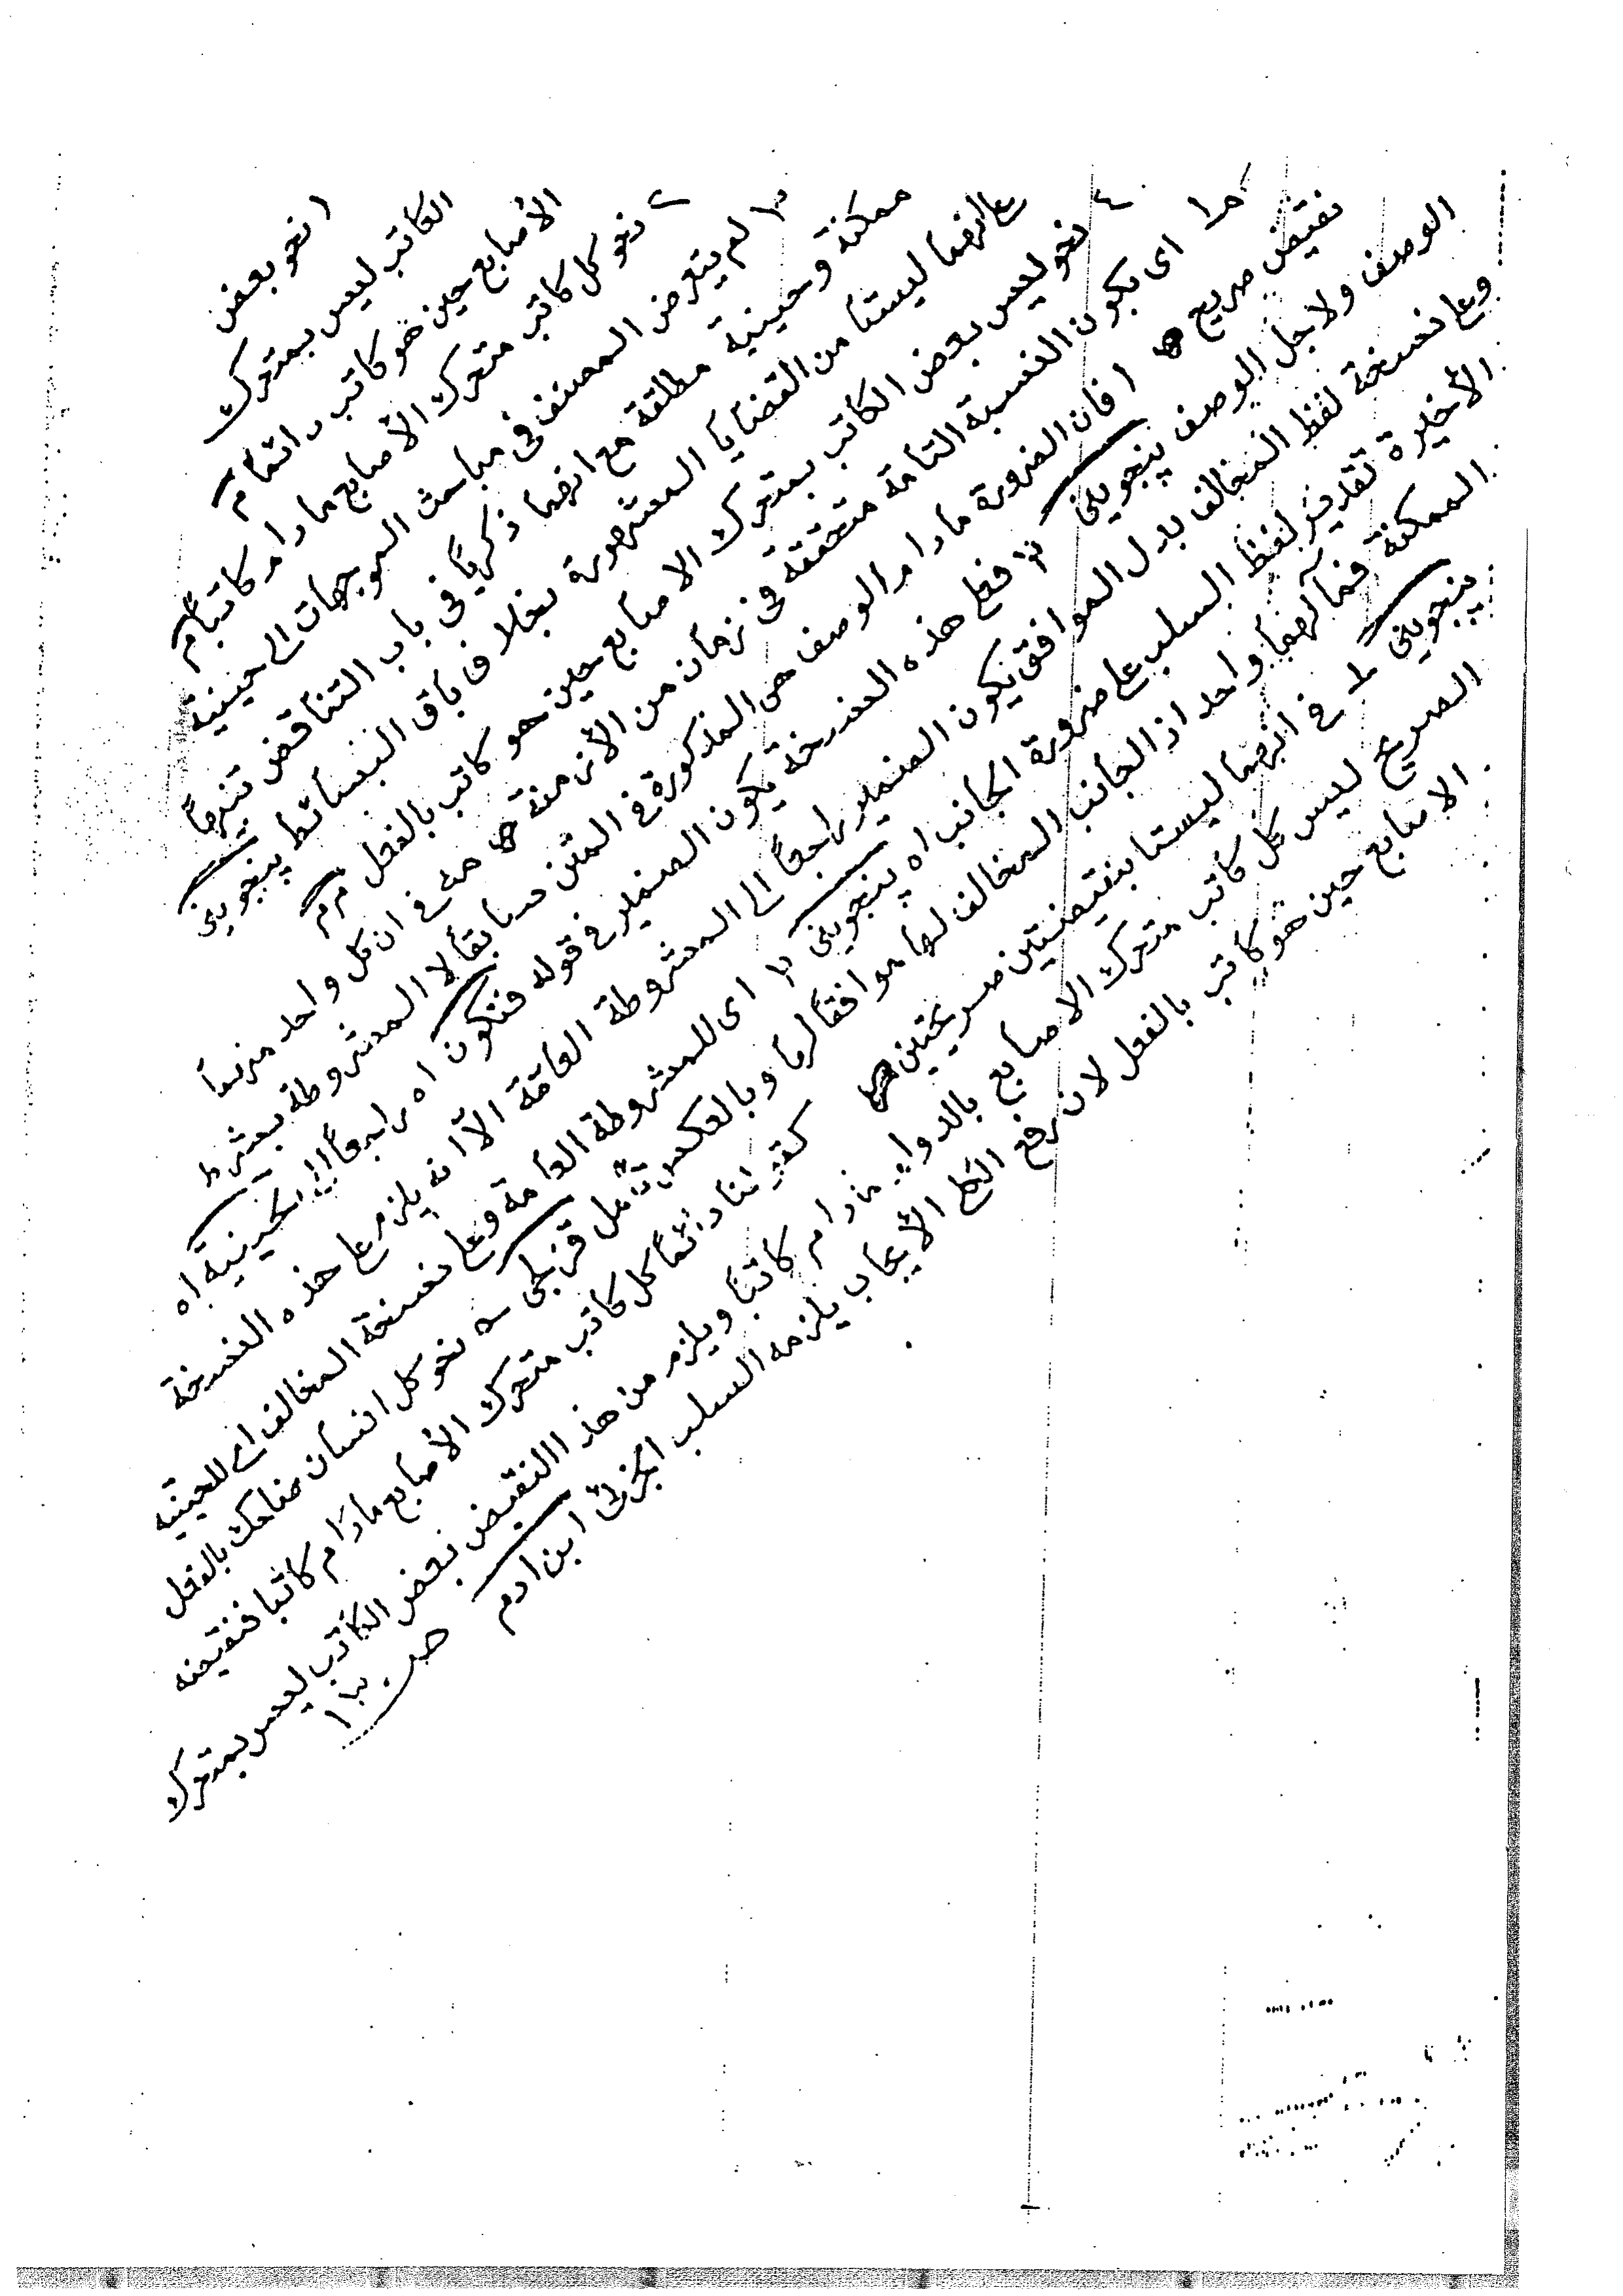 ١ نحو بعض
الكاتب ليس بمتحرك
الأصابع حين هو كاتب دائمًا م
٢ نحو كل كاتب متحرك الأصابع ما دام كاتبًا م
٣ لم يتعرض المصنف فى مباحث الموجهات الى حينية
ممكنة وحينية مطلقة مع انهما ذكرتا فى باب التناقض تنبيهًا
على انهما ليستا من القضايا المشهورة بخلاف باق البسائط پينجوينى
٤ نحو ليس بعض الكاتب بمتحرك الاصابع حين هو كاتب بالفعل م م
اى يكون النسبة التامة متحققة فى زمان من الأزمنة ص منه فى ان كل واحد منهما
نقيض صريح ص ١ فان الضرورة ما دام الوصف هى المذكورة فى المتن سابقًا لا المشروطة بشرط
الوصف ولاجل الوصف پنجوينى ٣ فعلى هذه النسخة يكون الضمير فى قوله فتكون اه راجعًا الى الحينية اه
وعلى نسخة لفظ المخالف بدل الموافق يكون الضمير راجعًا الى المشروطة العامّة الّا انه يلزم على هذه النسخة
الأخيرة تقدير لفظ السلب على ضرورة الجانب اه پنجوينى ٢ اى للمشروطة العامة وعلى نسخة المخالف اى للحينية
الممكنة فمآلهما واحد اذ الجانب المخالف لها موافقًا لها وبالعكس تأمل قزلجى ٥ نحو كل انسان ضاحك بالفعل
پنجوينى فى انهما ليستا بنقيضتين صريحتين ص كقولنا دائمًا كل كاتب متحرك الأصابع مادام كاتبا فنقيضه
الصريح ليس كل كاتب متحرك الاصابع بالدوام مادام كاتبًا ويلزم من هذا النقيض بعض الكاتب ليس بمتحرك
الاصابع حين هو كاتب بالفعل لان رفع الكلى الأيجاب يلزمه السلب الجزئى ابن ادم